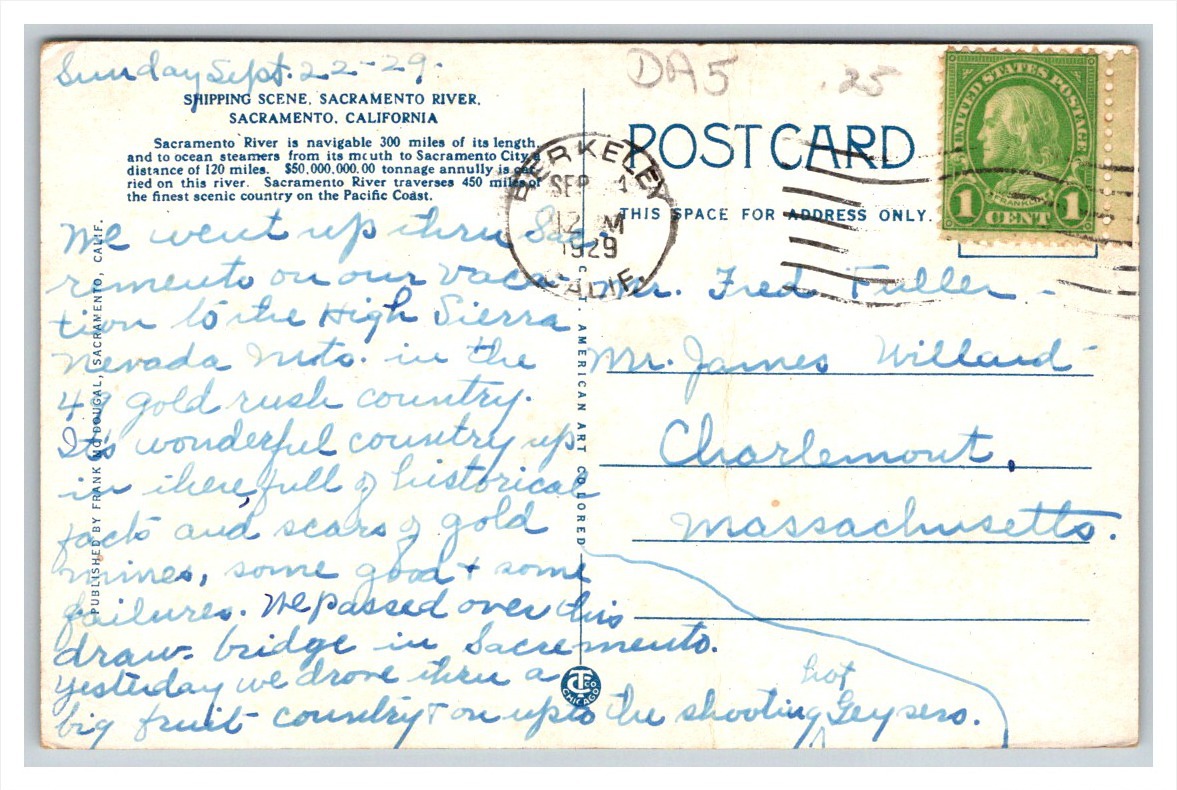 Sunday Sept. 22-29.
SHIPPING SCENE, SACRAMENTO RIVER,
SACRAMENTO, CALIFORNIA
Sacramento River is navigable 300 miles of its length,
and to ocean steamers from its mouth to Sacramento City a
distance of 120 miles. $50,000,000.00 tonnage annually is car-
ried on this river. Sacramento River traverses 450 miles of
the finest scenic country on the Pacific Coast.
We went up thru Sac-
rimento on our vaca-
tion to the High Sierra
Nevada Mts. in the
49 gold rush country.
It's wonderful country up
in there, full of historical
facts and scars of gold
mines, some good + some
failures. We passed over this
draw- bridge in Sacremento.
Yesterday we drove thru a
big fruit country + on up to the shooting hot Geysers.
PUBLISHED BY FRANK MC DOUGAL, SACRAMENTO, CALIF.
C. T. AMERICAN ART COLORED
CTCO
CHICAGO
DA5 .25
POST CARD
THIS SPACE FOR ADDRESS ONLY.
BERKELEY
SEP
12 M
1929
CALIF.
UNITED STATES POSTAGE
FRANKLIN
1 CENT 1
Mr. Fred Fuller -
Mr. James Willard -
Charlemont,
Massachusetts.